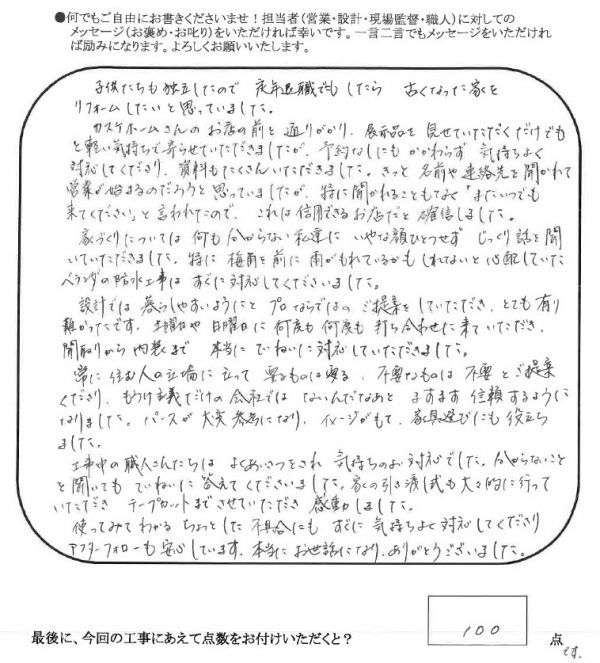 ●何でもご自由にお書きくださいませ！担当者（営業・設計・現場監督・職人）に対しての
メッセージ（お褒め・お叱り）をいただければ幸いです。一言二言でもメッセージをいただけれ
ば励みになります。よろしくお願いいたします。
子供たちも独立したので 定年退職でもしたら 古くなった家を
リフォームしたいと思っていました。
カスケホームさんのお店の前を通りがかり、展示品を見せていただくだけでも
と軽い気持ちで寄らせていただきましたが、予約なしにもかかわらず 気持ちよく
対応してくださり、資料もたくさんいただきました。きっと 名前や連絡先を聞かれて
営業が始まるのだろうと思っていましたが、特に聞かれることもなく「またいつでも
来てください」と言われたので、これは信用できるお店だと確信しました。
家づくりについては 何も分からない私達に いやな顔ひとつせず じっくり話を聞
いていただきました。特に 梅雨を前に 雨がもれているかもしれないと心配していた
ベランダの防水工事は すぐに対応してくださいました。
設計では 暮らしやすいようにと プロならではの ご提案をしていただき、とても有り
難かったです。土曜日や 日曜日に 何度も何度も 打ち合わせに来ていただき、
間取りから内装まで 本当にていねいに対応していただきました。
常に 住む人の立場に立って 要るものは要る、不要なものは 不要 とご提案
くださり、もうけ主義だけの会社では ないんだなあと ますます 信頼するように
なりました。パースが大変 参考になり、イメージがもて、家具選びにも 役立ち
ました。
工事中の職人さんたちは よくあいさつをされ 気持ちのよい対応でした。分からないこと
を聞いても ていねいに 答えてくださいました。家の引き渡し式も大々的に行って
いただき テープカットまでさせていただき 感動しました。
使ってみてわかる ちょっとした 不具合にも すぐに 気持ちよく対応してくださり
アフターフォローも安心しています。本当にお世話になり、ありがとうございました。
最後に、今回の工事にあえて点数をお付けいただくと？ 100 点
です。